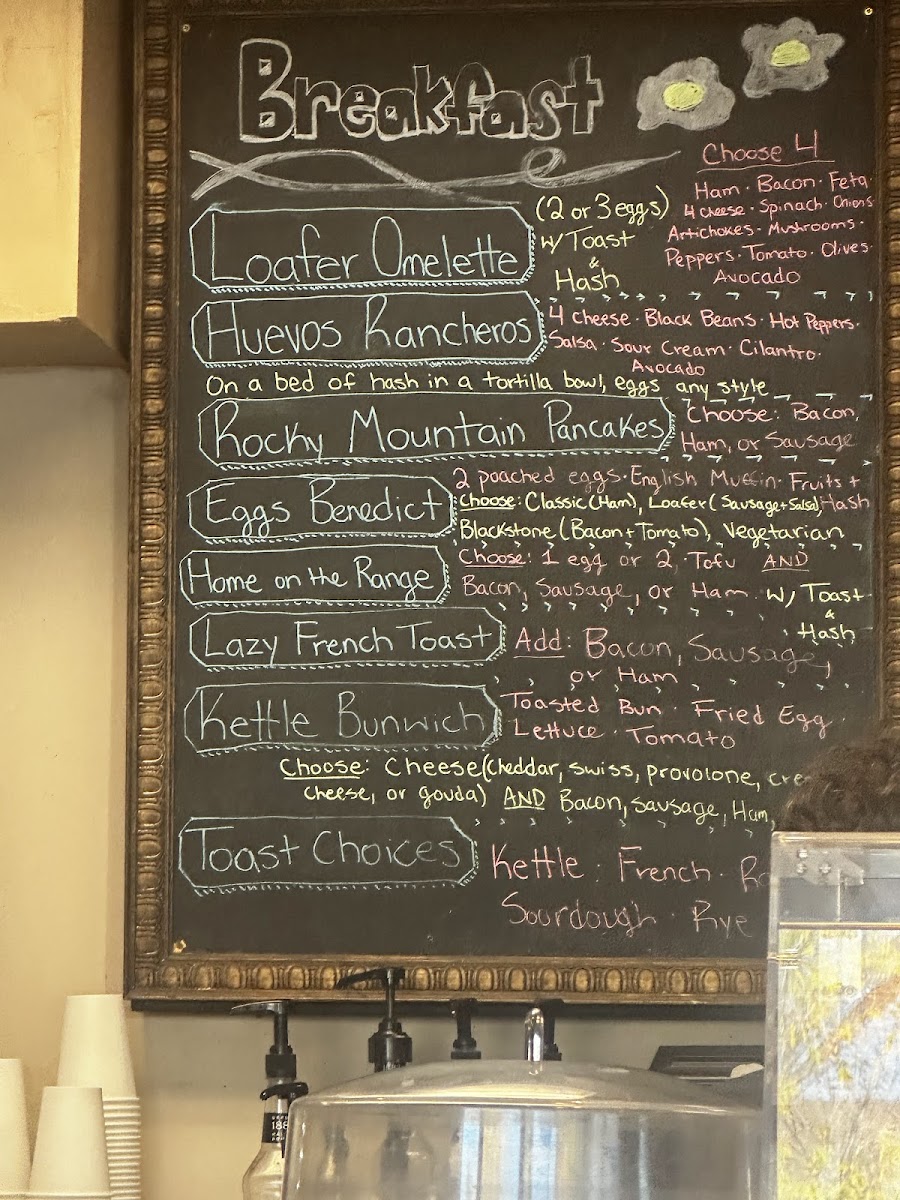 Breakfast
Choose 4
Ham · Bacon · Feta
4 cheese · Spinach · Onions
Artichokes · Mushrooms ·
Peppers · Tomato · Olives ·
Avocado
Loafer Omelette
(2 or 3 eggs)
w/ Toast
&
Hash
Huevos Rancheros
4 cheese · Black Beans · Hot Peppers ·
Salsa · Sour Cream · Cilantro ·
Avocado
On a bed of hash in a tortilla bowl, eggs any style
Rocky Mountain Pancakes
Choose: Bacon,
Ham, or Sausage
Eggs Benedict
2 poached eggs · English Muffin · Fruits +
Hash
Choose: Classic (Ham), Loafer (Sausage + Salsa)
Blackstone (Bacon + Tomato), Vegetarian
Home on the Range
Choose: 1 egg or 2 · Tofu AND
Bacon, Sausage, or Ham
w/ Toast
&
Hash
Lazy French Toast
Add: Bacon, Sausage,
or Ham
Kettle Bunwich
Toasted Bun · Fried Egg ·
Lettuce · Tomato
Choose: Cheese (Cheddar, swiss, provolone,
cheese, or gouda) AND Bacon, Sausage, Ham,
Toast Choices
Kettle · French ·
Sourdough · Rye
188